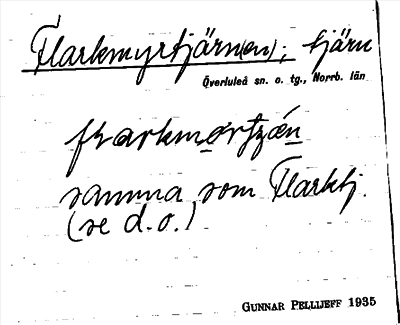 Flarkmyrtjärn(en); tjärn
Överluleå sn. o. tg., Norrb. län
samma som Flarktj.
(se d.o.)
GUNNAR PELLIJEFF 1935